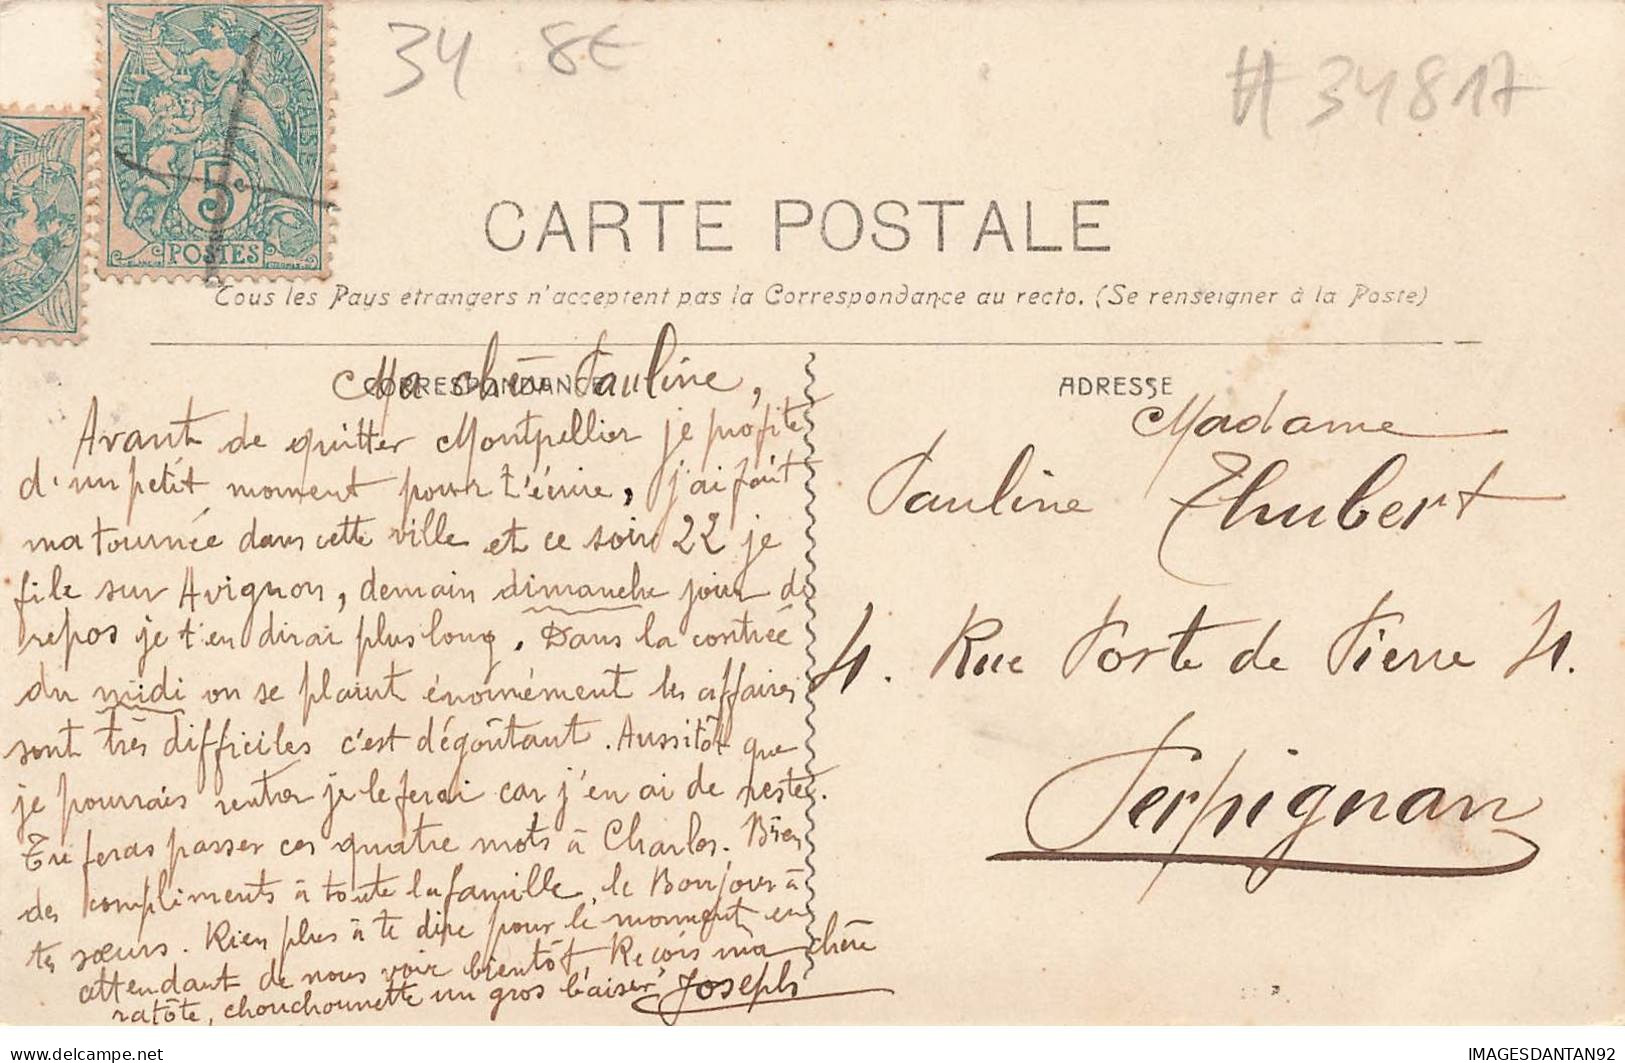 34 8€
# 34817
RÉPUBLIQUE FRANÇAISE
5c
POSTES
CARTE POSTALE
Tous les Pays étrangers n'acceptent pas la Correspondance au recto. (Se renseigner à la Poste)
CORRESPONDANCE
ADRESSE
Ma chère Pauline,
Avant de quitter Montpellier je profite
d'un petit moment pour t'écrire, j'ai fait
ma tournée dans cette ville et ce soir 22 je
file sur Avignon, demain dimanche jour de
repos je t'en dirai plus long. Dans la contrée
du midi on se plaint énormément les affaires
sont très difficiles c'est dégoûtant. Aussitôt que
je pourrais rentrer je le ferai car j'en ai de reste.
Tu feras passer ces quatre mots à Charles. Bien
des compliments à toute la famille, le Bonjour à
tes sœurs. Rien plus à te dire pour le moment en
attendant de nous voir bientôt Reçois ma chère
ratôte, chouchounette un gros baiser Joseph
Madame
Pauline Thubert
4. Rue Porte de Pierre 4.
Perpignan
https://www.delcampe.net
IMAGESDANTAN92